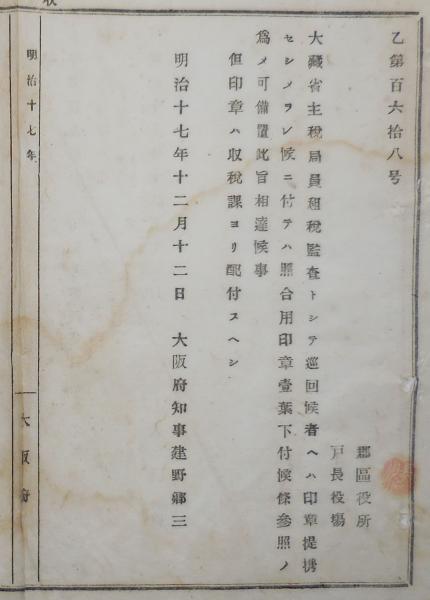 乙第百六拾八号
郡區役所
戸長役塲
大藏省主税局員租税監査トシテ巡回候者ヘハ印章提携
セシメラレ候ニ付テハ照合用印章壹葉下付候條參照ノ
爲メ可備置此旨相達候事
但印章ハ収税課ヨリ配付スヘシ
明治十七年十二月十二日 大阪府知事建野郷三
明治十七年
大阪府